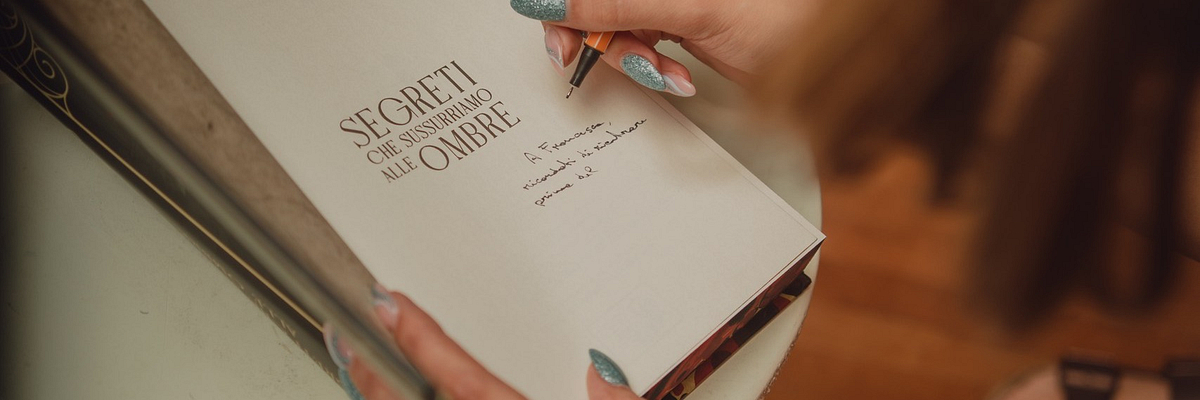 SEGRETI
CHE SUSSURRIAMO
ALLE OMBRE
A Francesca,
ricordati di
prima del